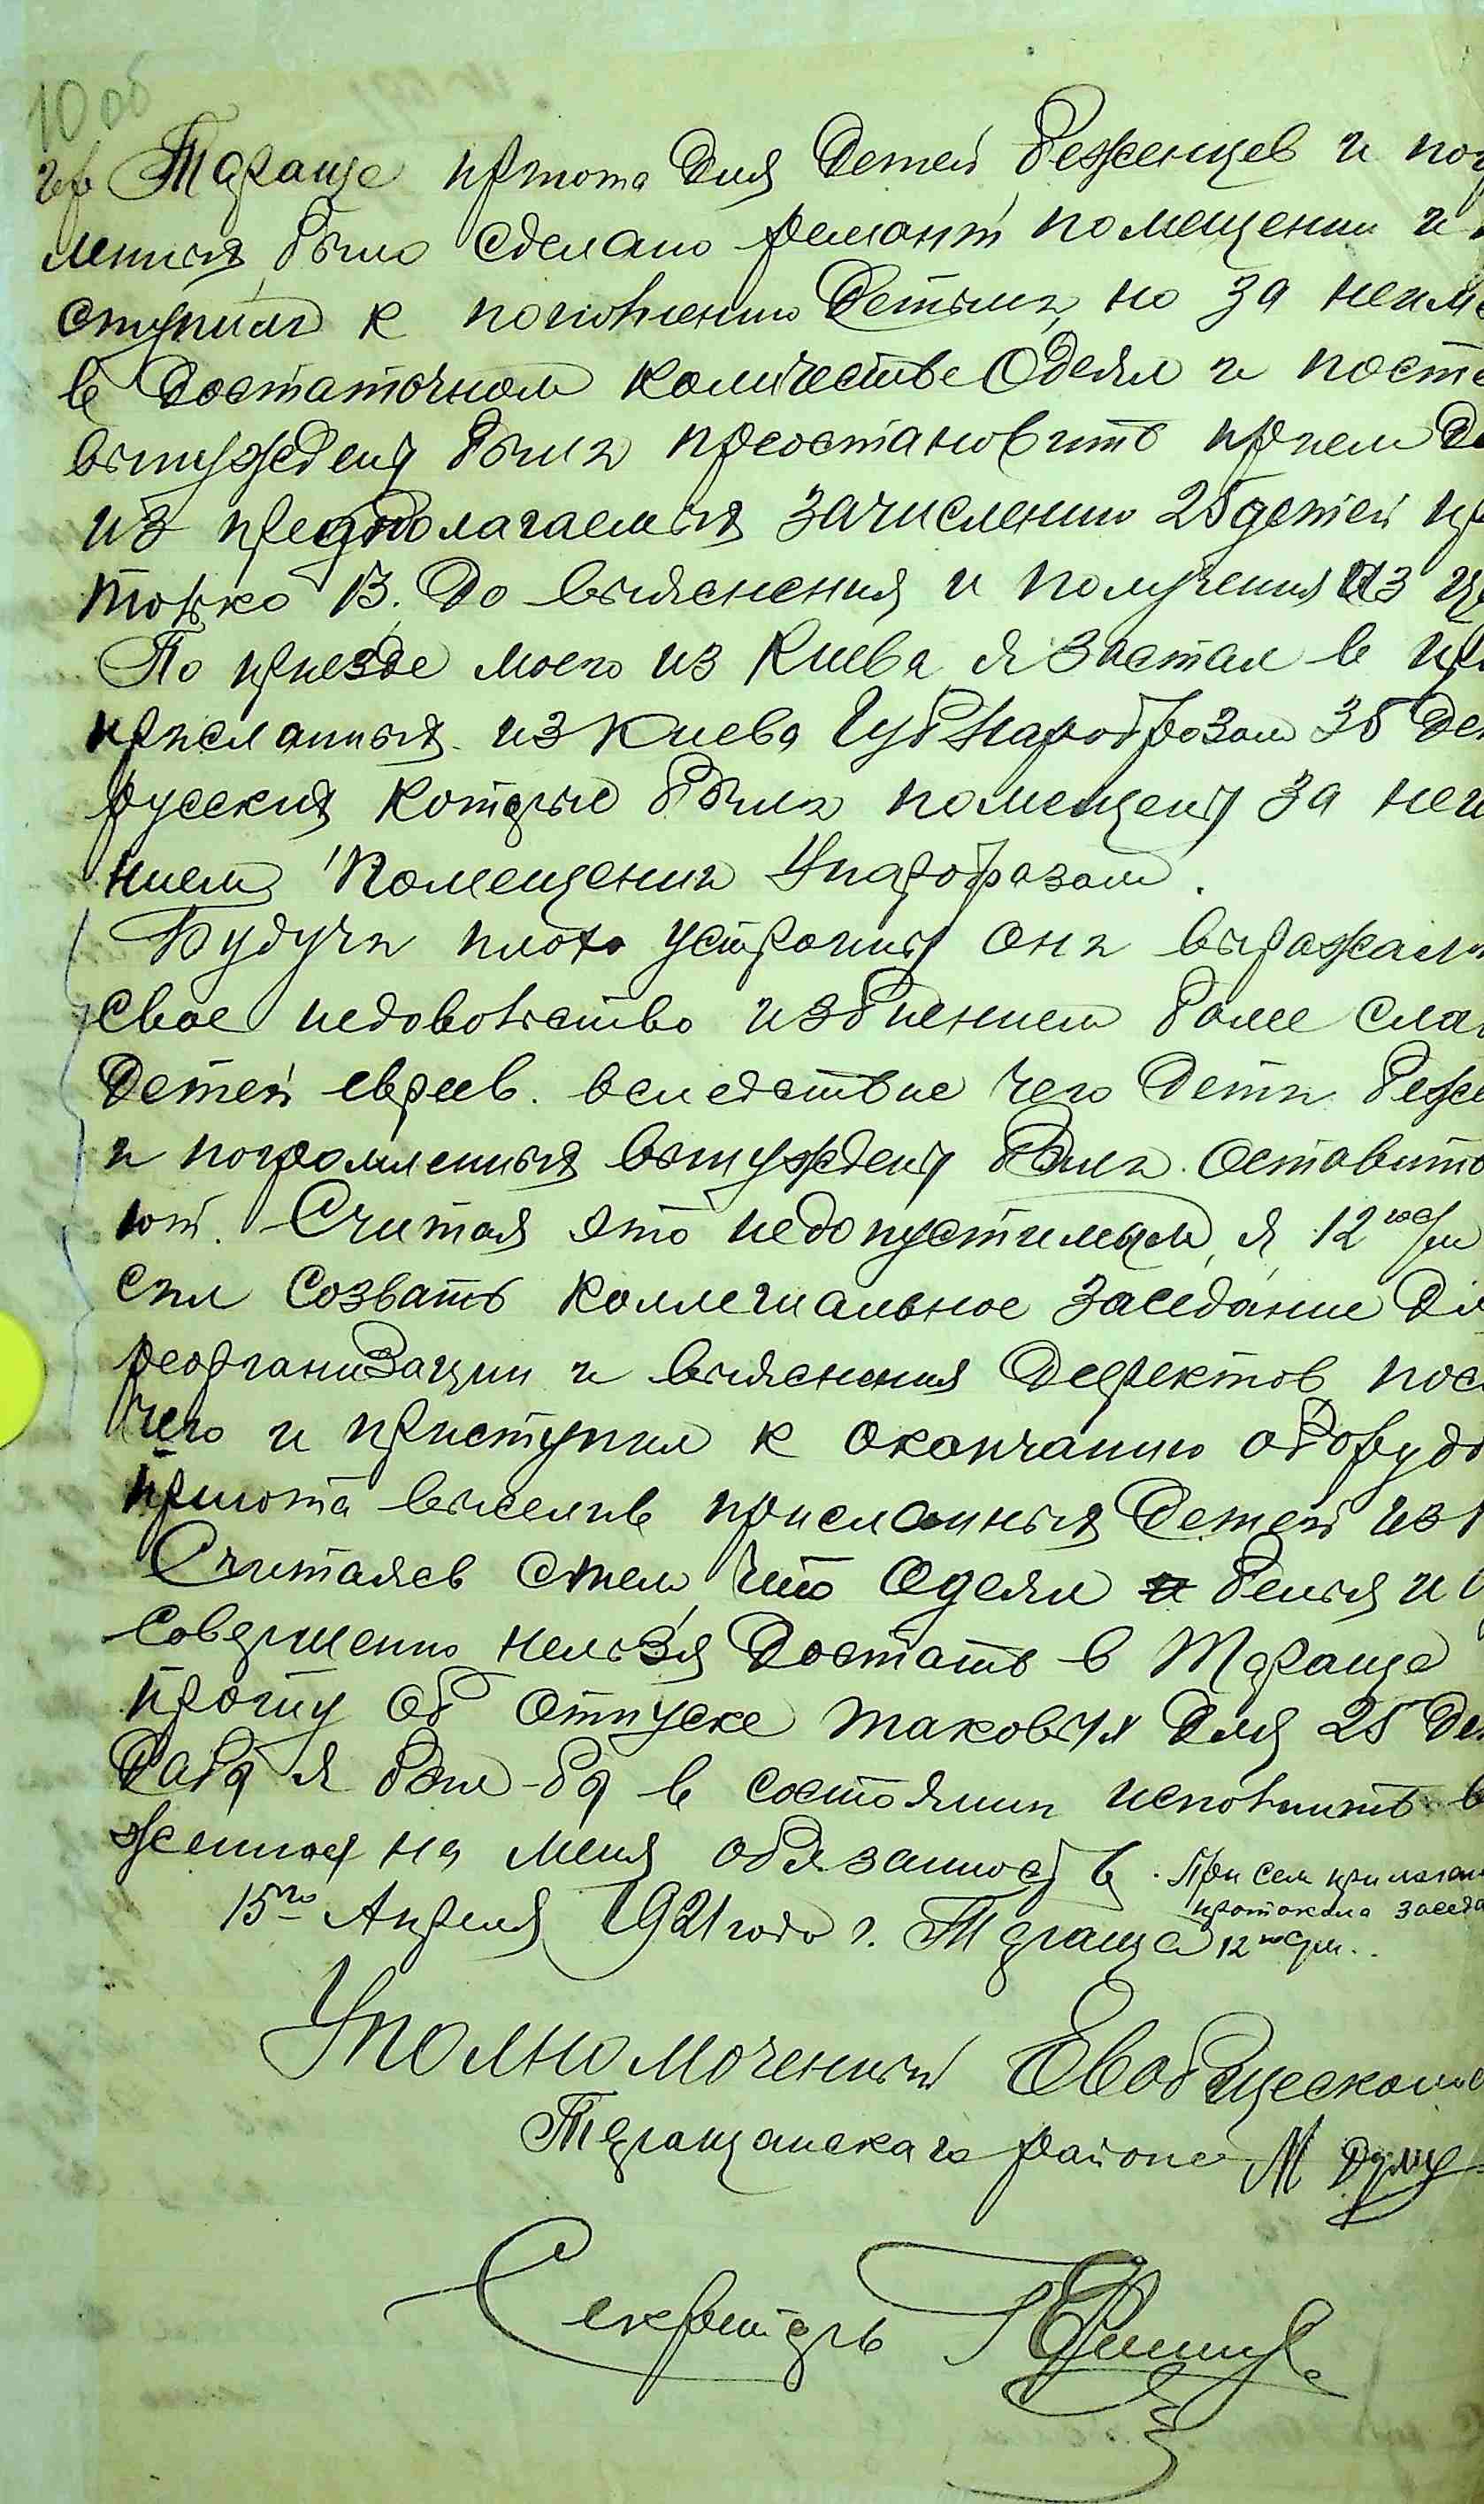 10 об
Тараще приюта для детей беженцев и пог
ленных было сделано ремонт помещении и
ступил к пополнению детьми, но за неиме
в достаточном количестве одеял и посте
вынуждены были преостановить прием де
из предполагаемых зачислению 25 детей пр
только 13. До выяснения и получения из це
По приезде моего из Киева я застал в при
присланных из Киева Губнаробразом 35 дет
русских которые были помещены за неи
нием помещении Унаробразом.
Будучи плохо устроины они выражали
свое недовольство избиением более слаб
детей евреев. вследствие чего дети беже
и погромленных вынуждены были оставить
ют. Считая это недопустимым, я 12го с/м
сил созвать коллегиальное заседание дл
реорганизации и выяснения дефектов, посл
чего и приступил к окончанию оборудо
приюта выселив присланных детей из К
Считаясь с тем, что одеял и белья и
совершенно нельзя достать в Тараще
прошу об отпуске таковых для 25 дет
дабы я был-бы в состоянии исполнить в
женные на меня обязанность. При сем прилагаю
протокола заседа
15го Апреля 1921 года г. Тараща 12го с/м..
Уполномоченный Евобщескома
Таращанскаго района М
Секретарь